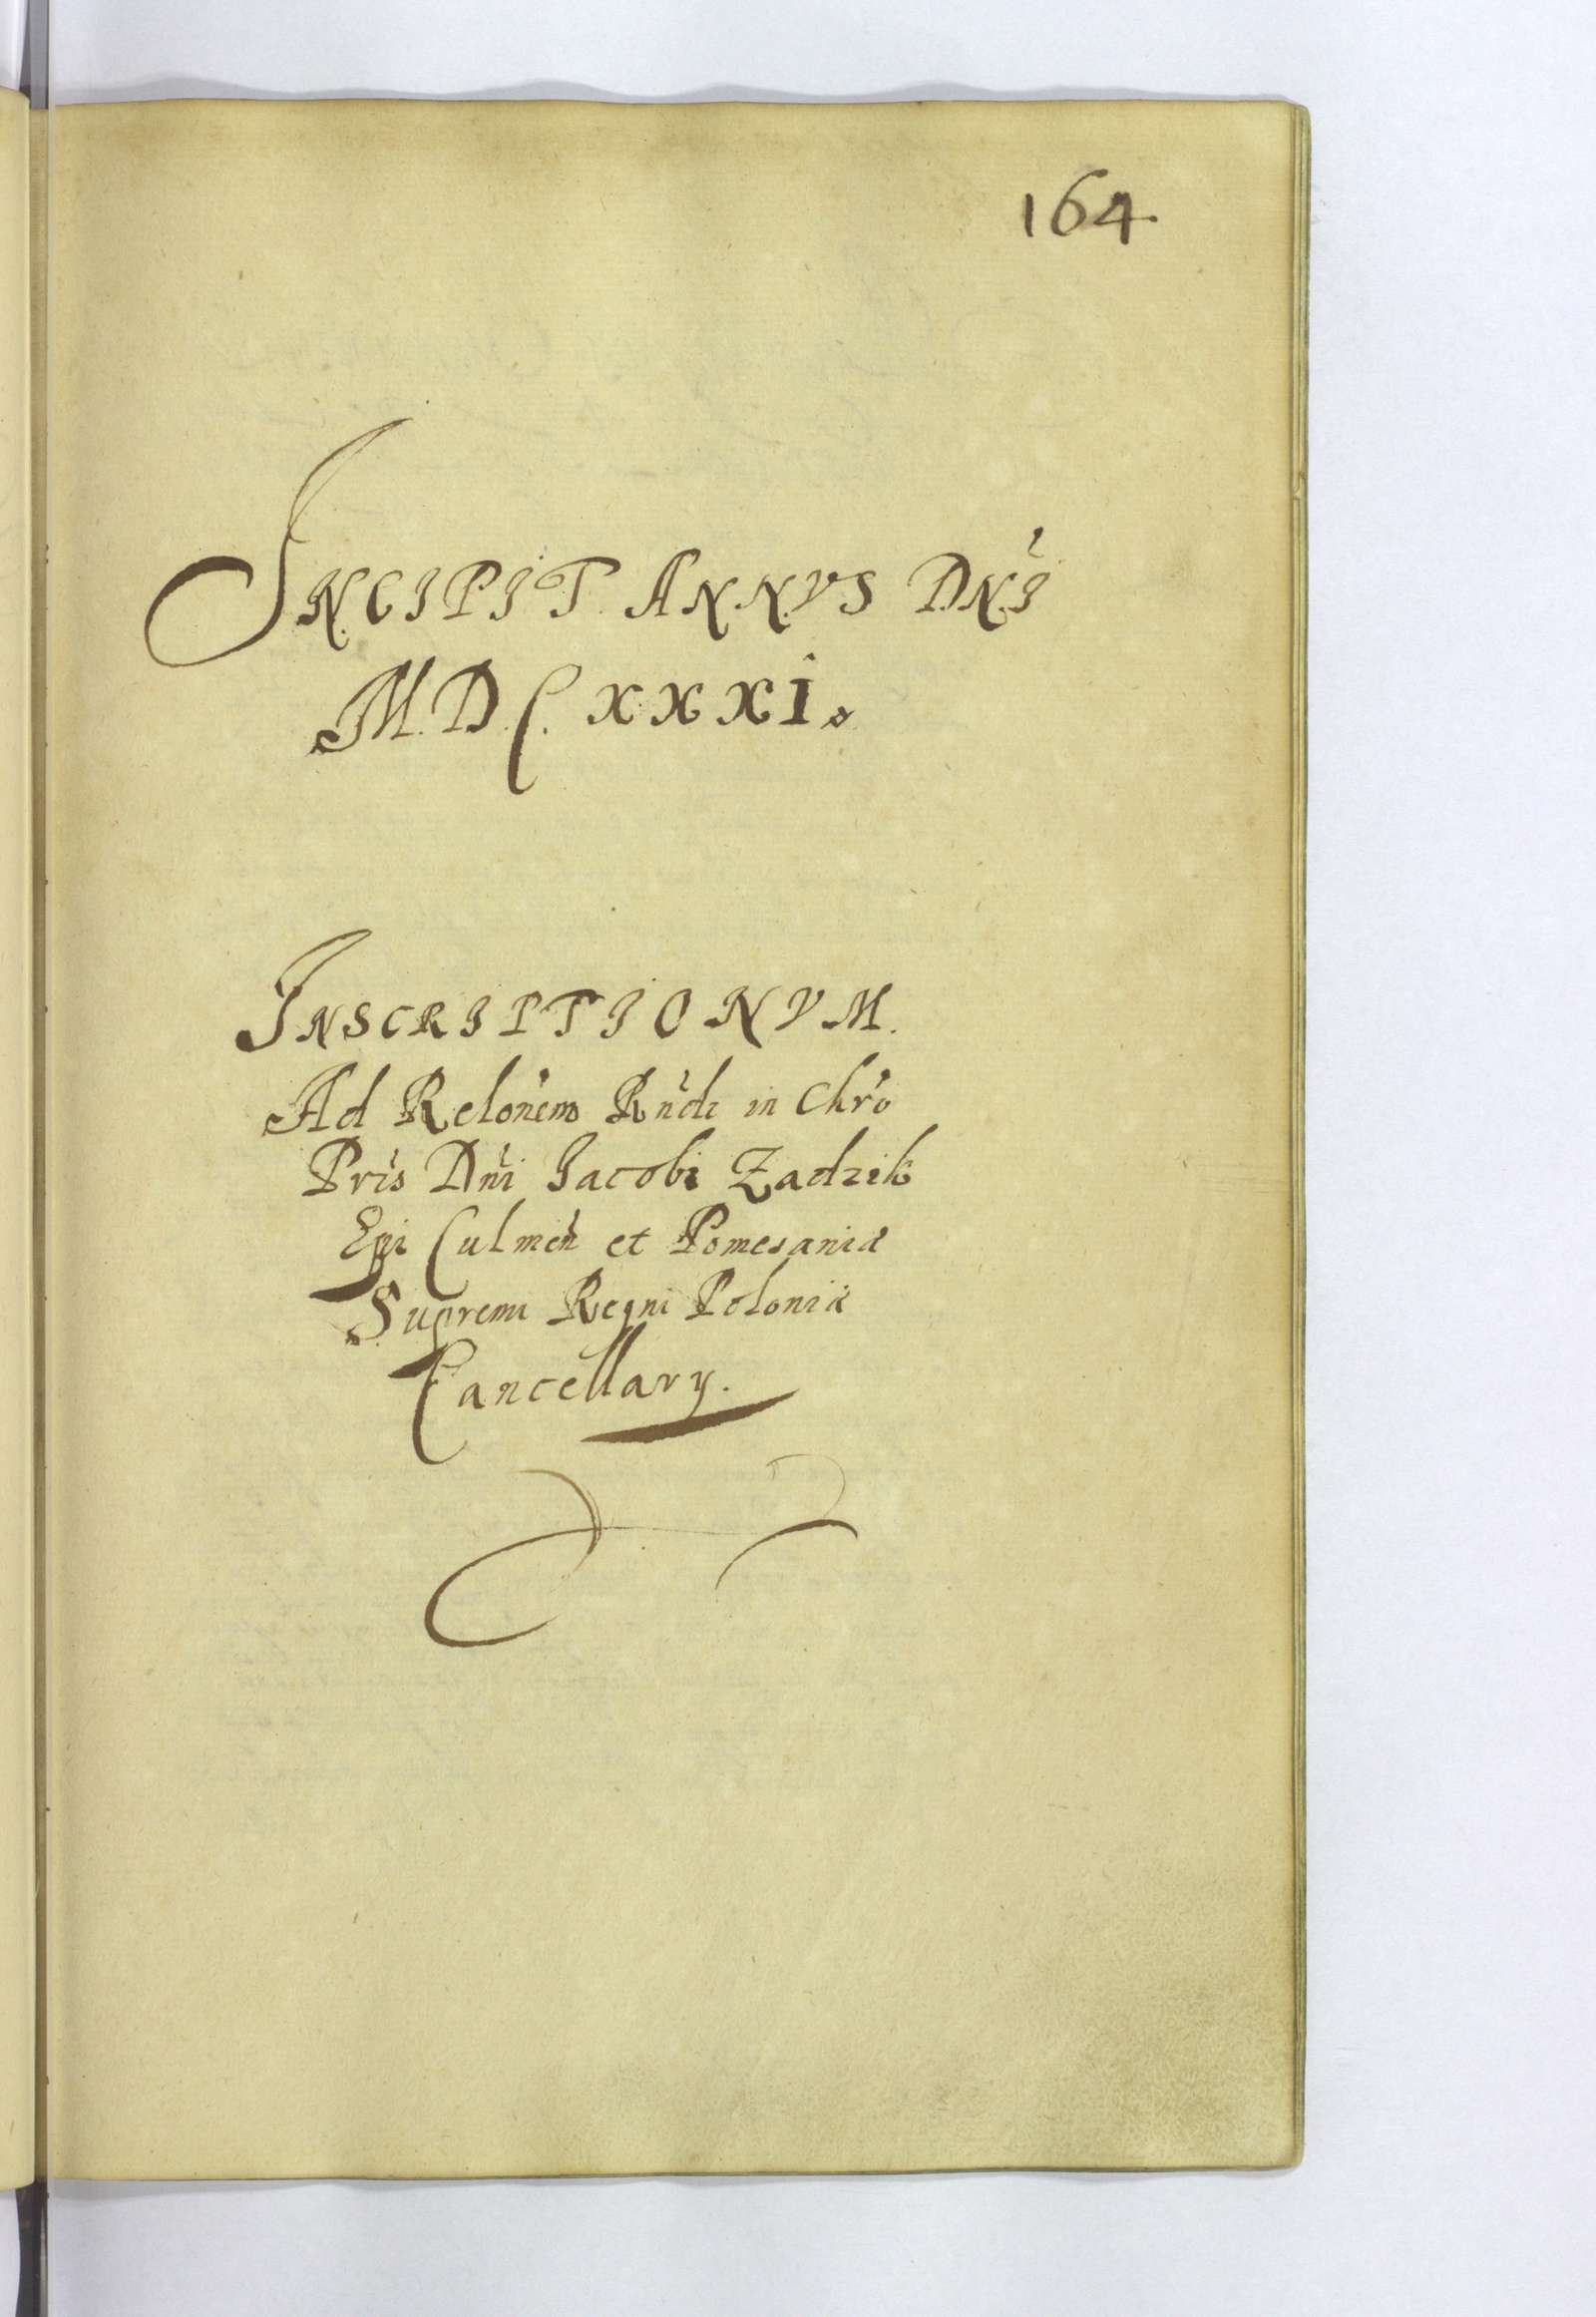 164.
INCIPIT ANNVS DNI
M.D.C.XXXI.
INSCRIPTIONVM.
Ad Relõnem Rndi in Chro
Pris Dni Jacobi Zadzik
Epi Culmen et Pomesaniæ
Supremi Regni Poloniæ
Cancellarÿ.